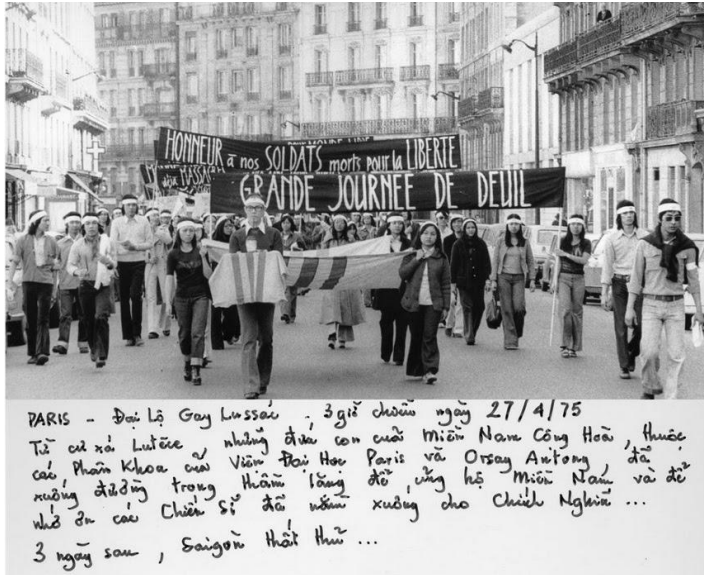 HONNEUR à nos SOLDATS morts pour la LIBERTE
GRANDE JOURNEE DE DEUIL
PARIS - Đại Lộ Gay Lussac . 3 giờ chiều ngày 27/4/75
Từ cư xá Lutèce những đứa con cuả Miền Nam Cộng Hoà, thuộc
các Phân Khoa cuả Viện Đại Học Paris và Orsay Antony, đã
xuống đường trong thầm lặng để ủng hộ Miền Nam và để
nhớ ơn các Chiến Sĩ đã nằm xuống cho Chính Nghiã ...
3 ngày sau, Saigon thất thủ ...